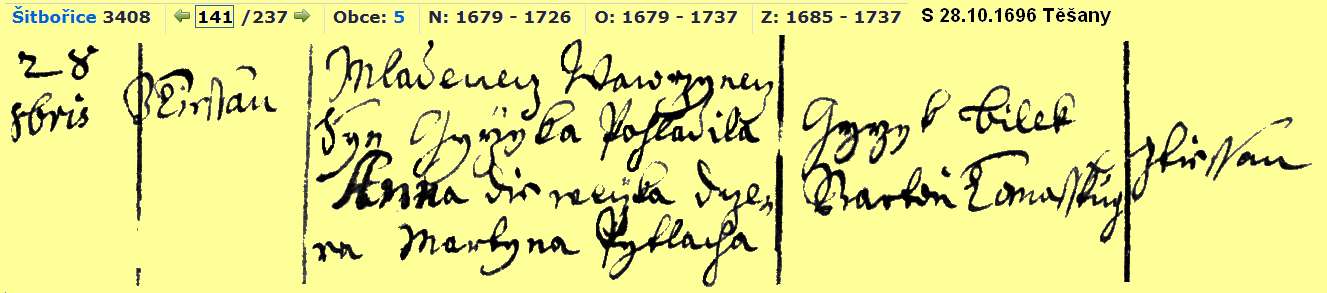 Šitbořice 3408 141 /237 Obce: 5 N: 1679 - 1726 O: 1679 - 1737 Z: 1685 - 1737 S 28.10.1696 Těšany
28
8bris
Mladenecz Wawrzynecz
Syn Gyržyka Pohladila
Anna dieweyka dcze-
ra Martyna Pytlacha
Gyrzyk Bilek
Marton Tomasskug